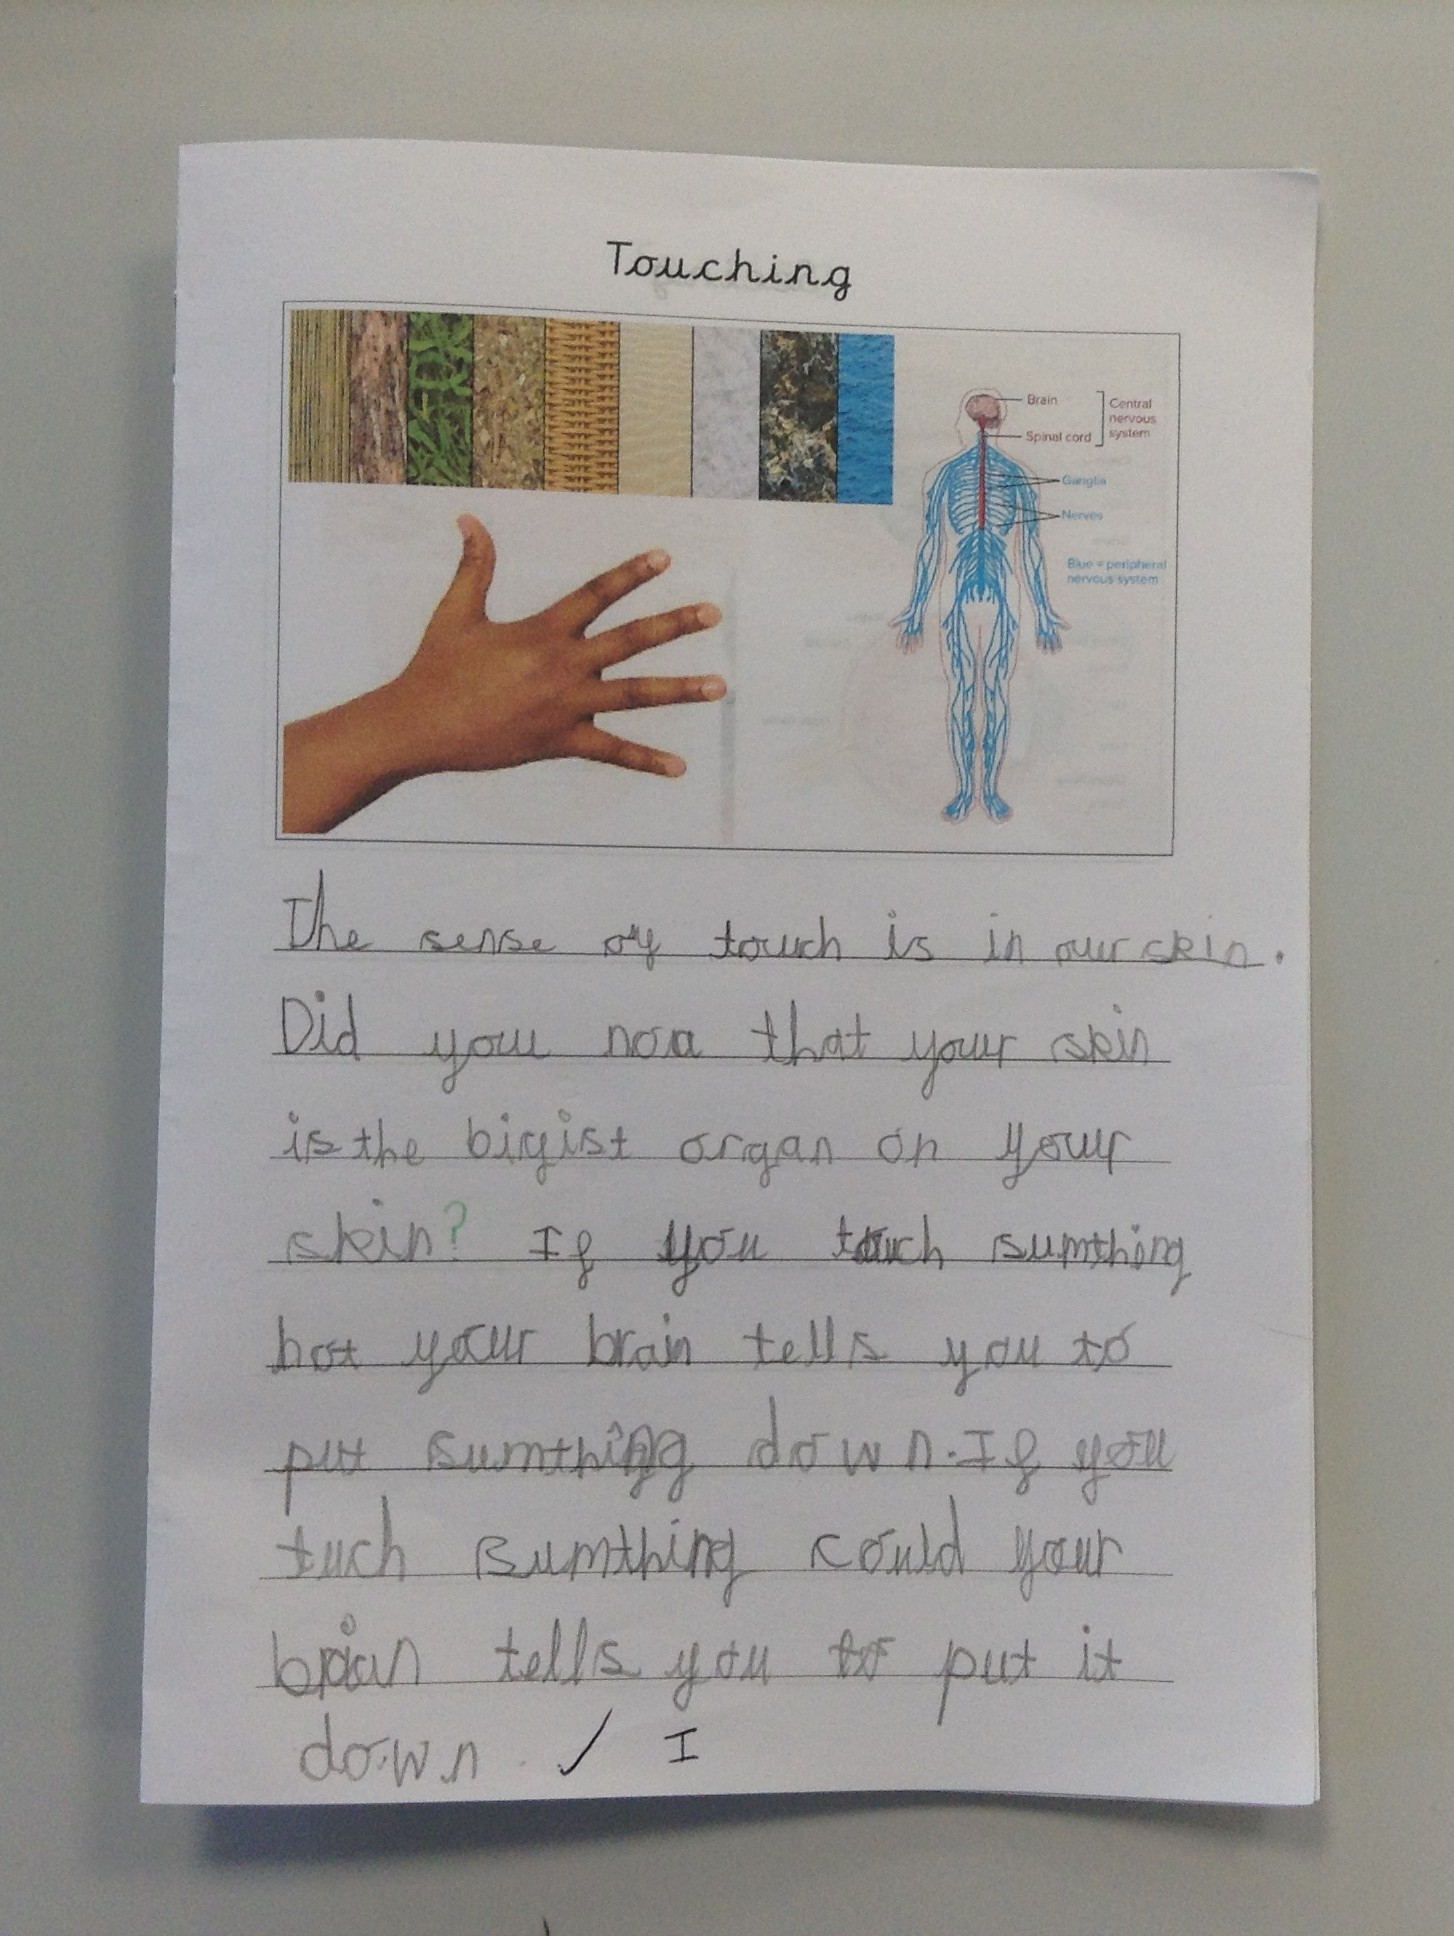 Touching
Brain
Central
nervous
system
Spinal cord
Ganglia
Nerves
Blue = peripheral
nervous system
The sense of touch is in our skin.
Did you noa that your skin
is the bigist organ on your
skin? If you touch sumthing
hot your brain tells you to
put sumthing down. If you
tuch sumthing could your
brian tells you to put it
down. ✓ I